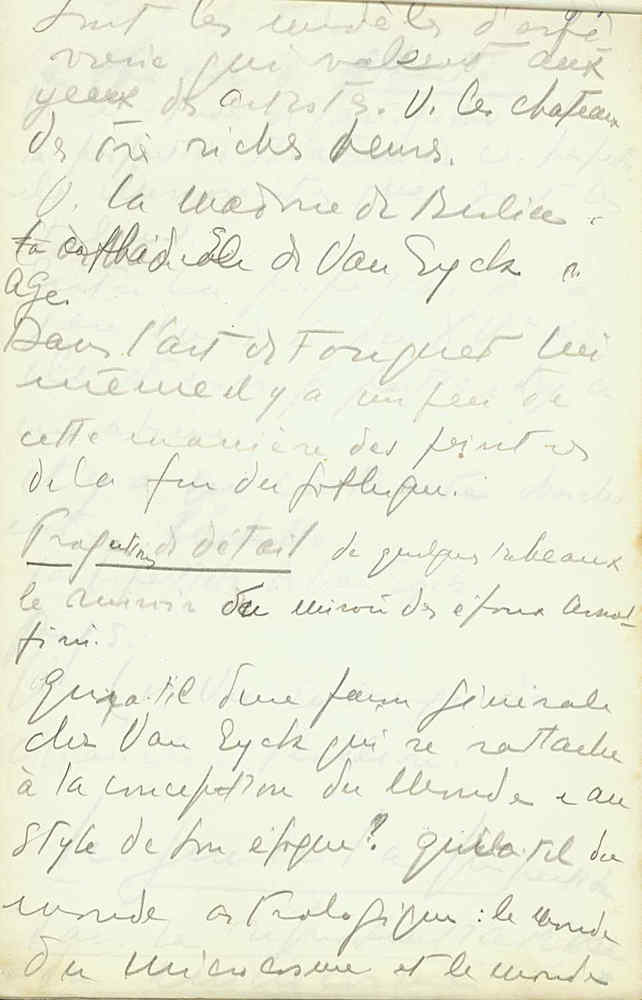 sont les modèles d'orfè
vrerie qui valent aux
yeux des artistes. V. les chateaux
des Très riches heures.
V. la madone de Berlin.
la cathédrale de Van Eyck
age.
Dans l'art de Fouquet lui
même il y a un peu de
cette manière des peintres
de la fin du gothique.
de détail de quelques tableaux
le miroir du miroir des époux Arnol-
fini.
Qu'y a-t-il d'une façon générale
chez Van Eyck qui se rattache
à la conception du Monde
style de son époque? qu'y a-t-il du
monde astrologique : le monde
du microcosme et le monde